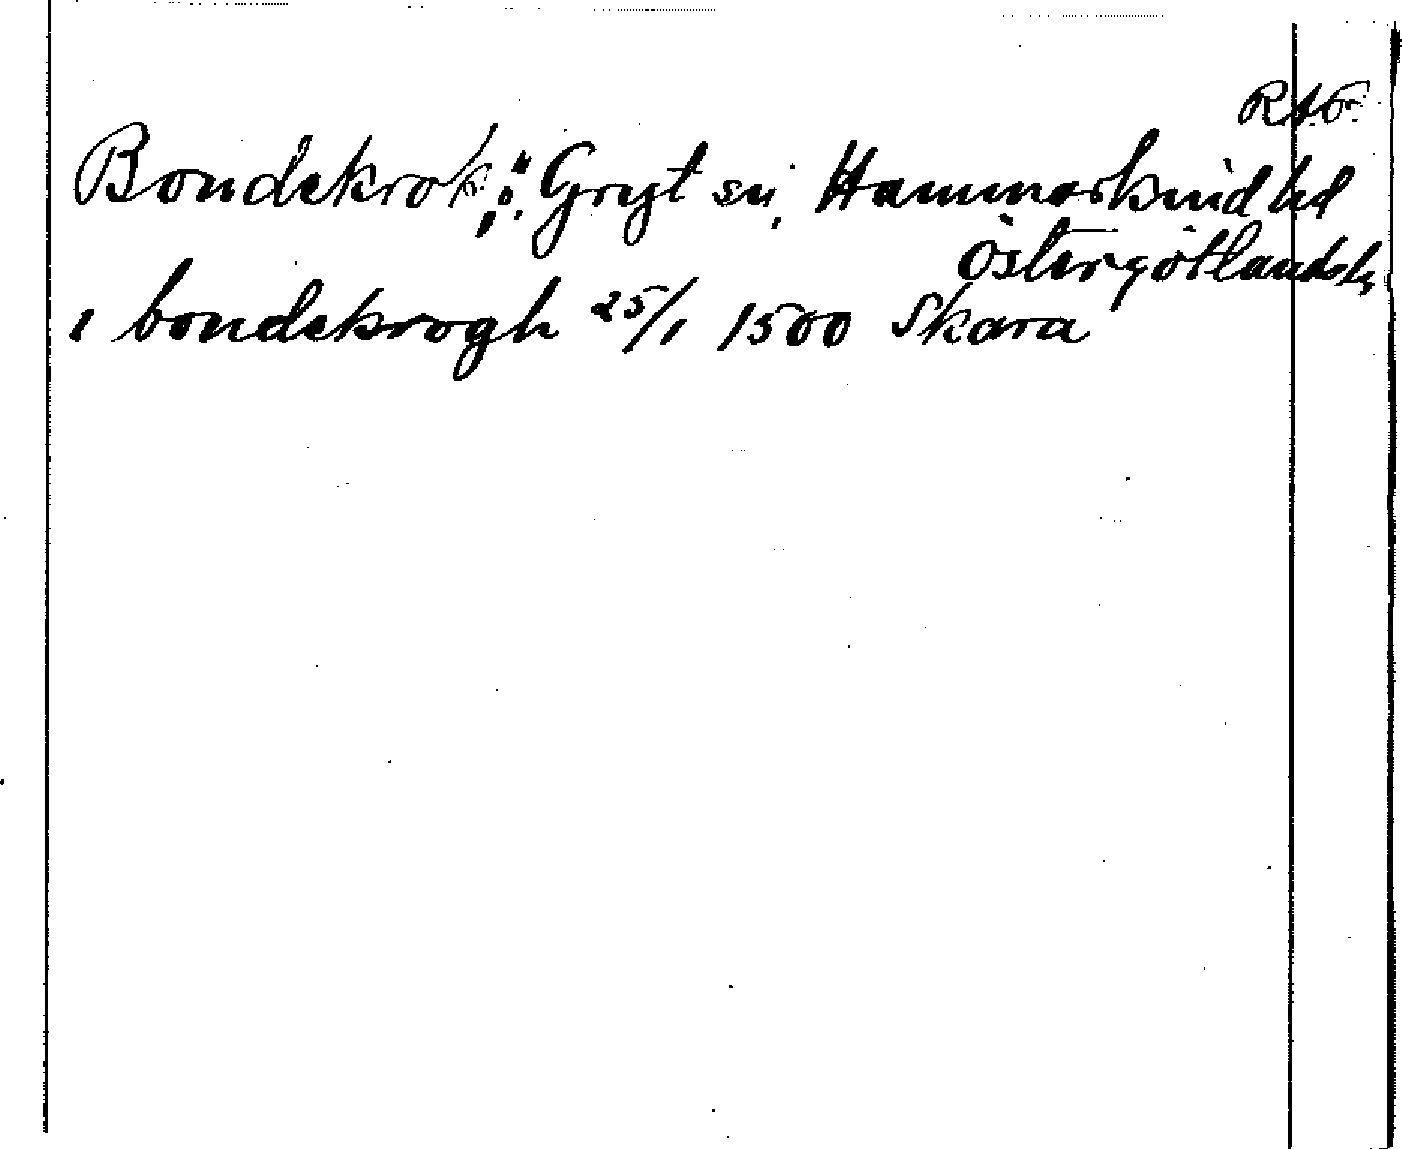 RAP.
Bondekrok, Gryt sn, Hammarkind hd
Östergötlands l,
i bondekrogh 25/1 1500 Skara